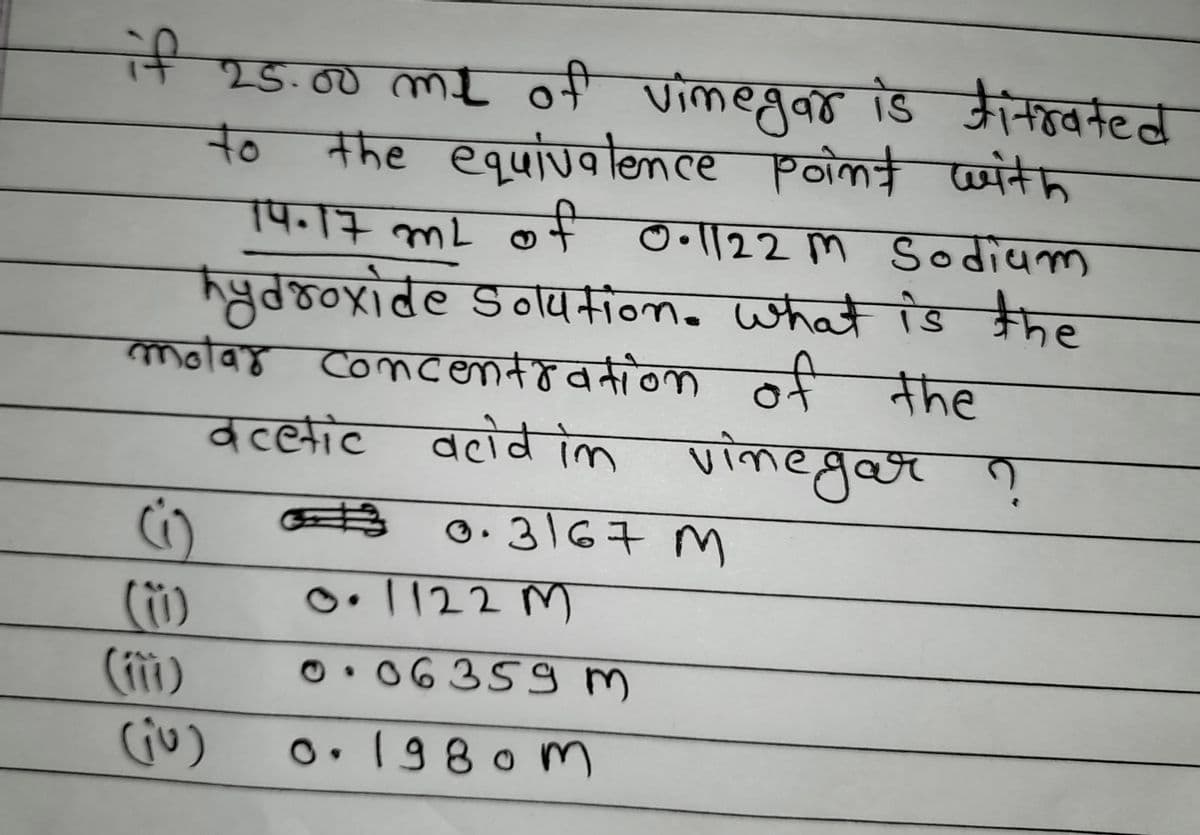 if 25.00 mL of vinegar is titrated
to the equivalence point with
14.17 mL of 0.1122 M Sodium
hydroxide solution. what is the
molar concentration of the
acetic acid in vinegar ?
(i) 0.3167 M
(ii) 0.1122 M
(iii) 0.06359 M
(iv) 0.1980 M